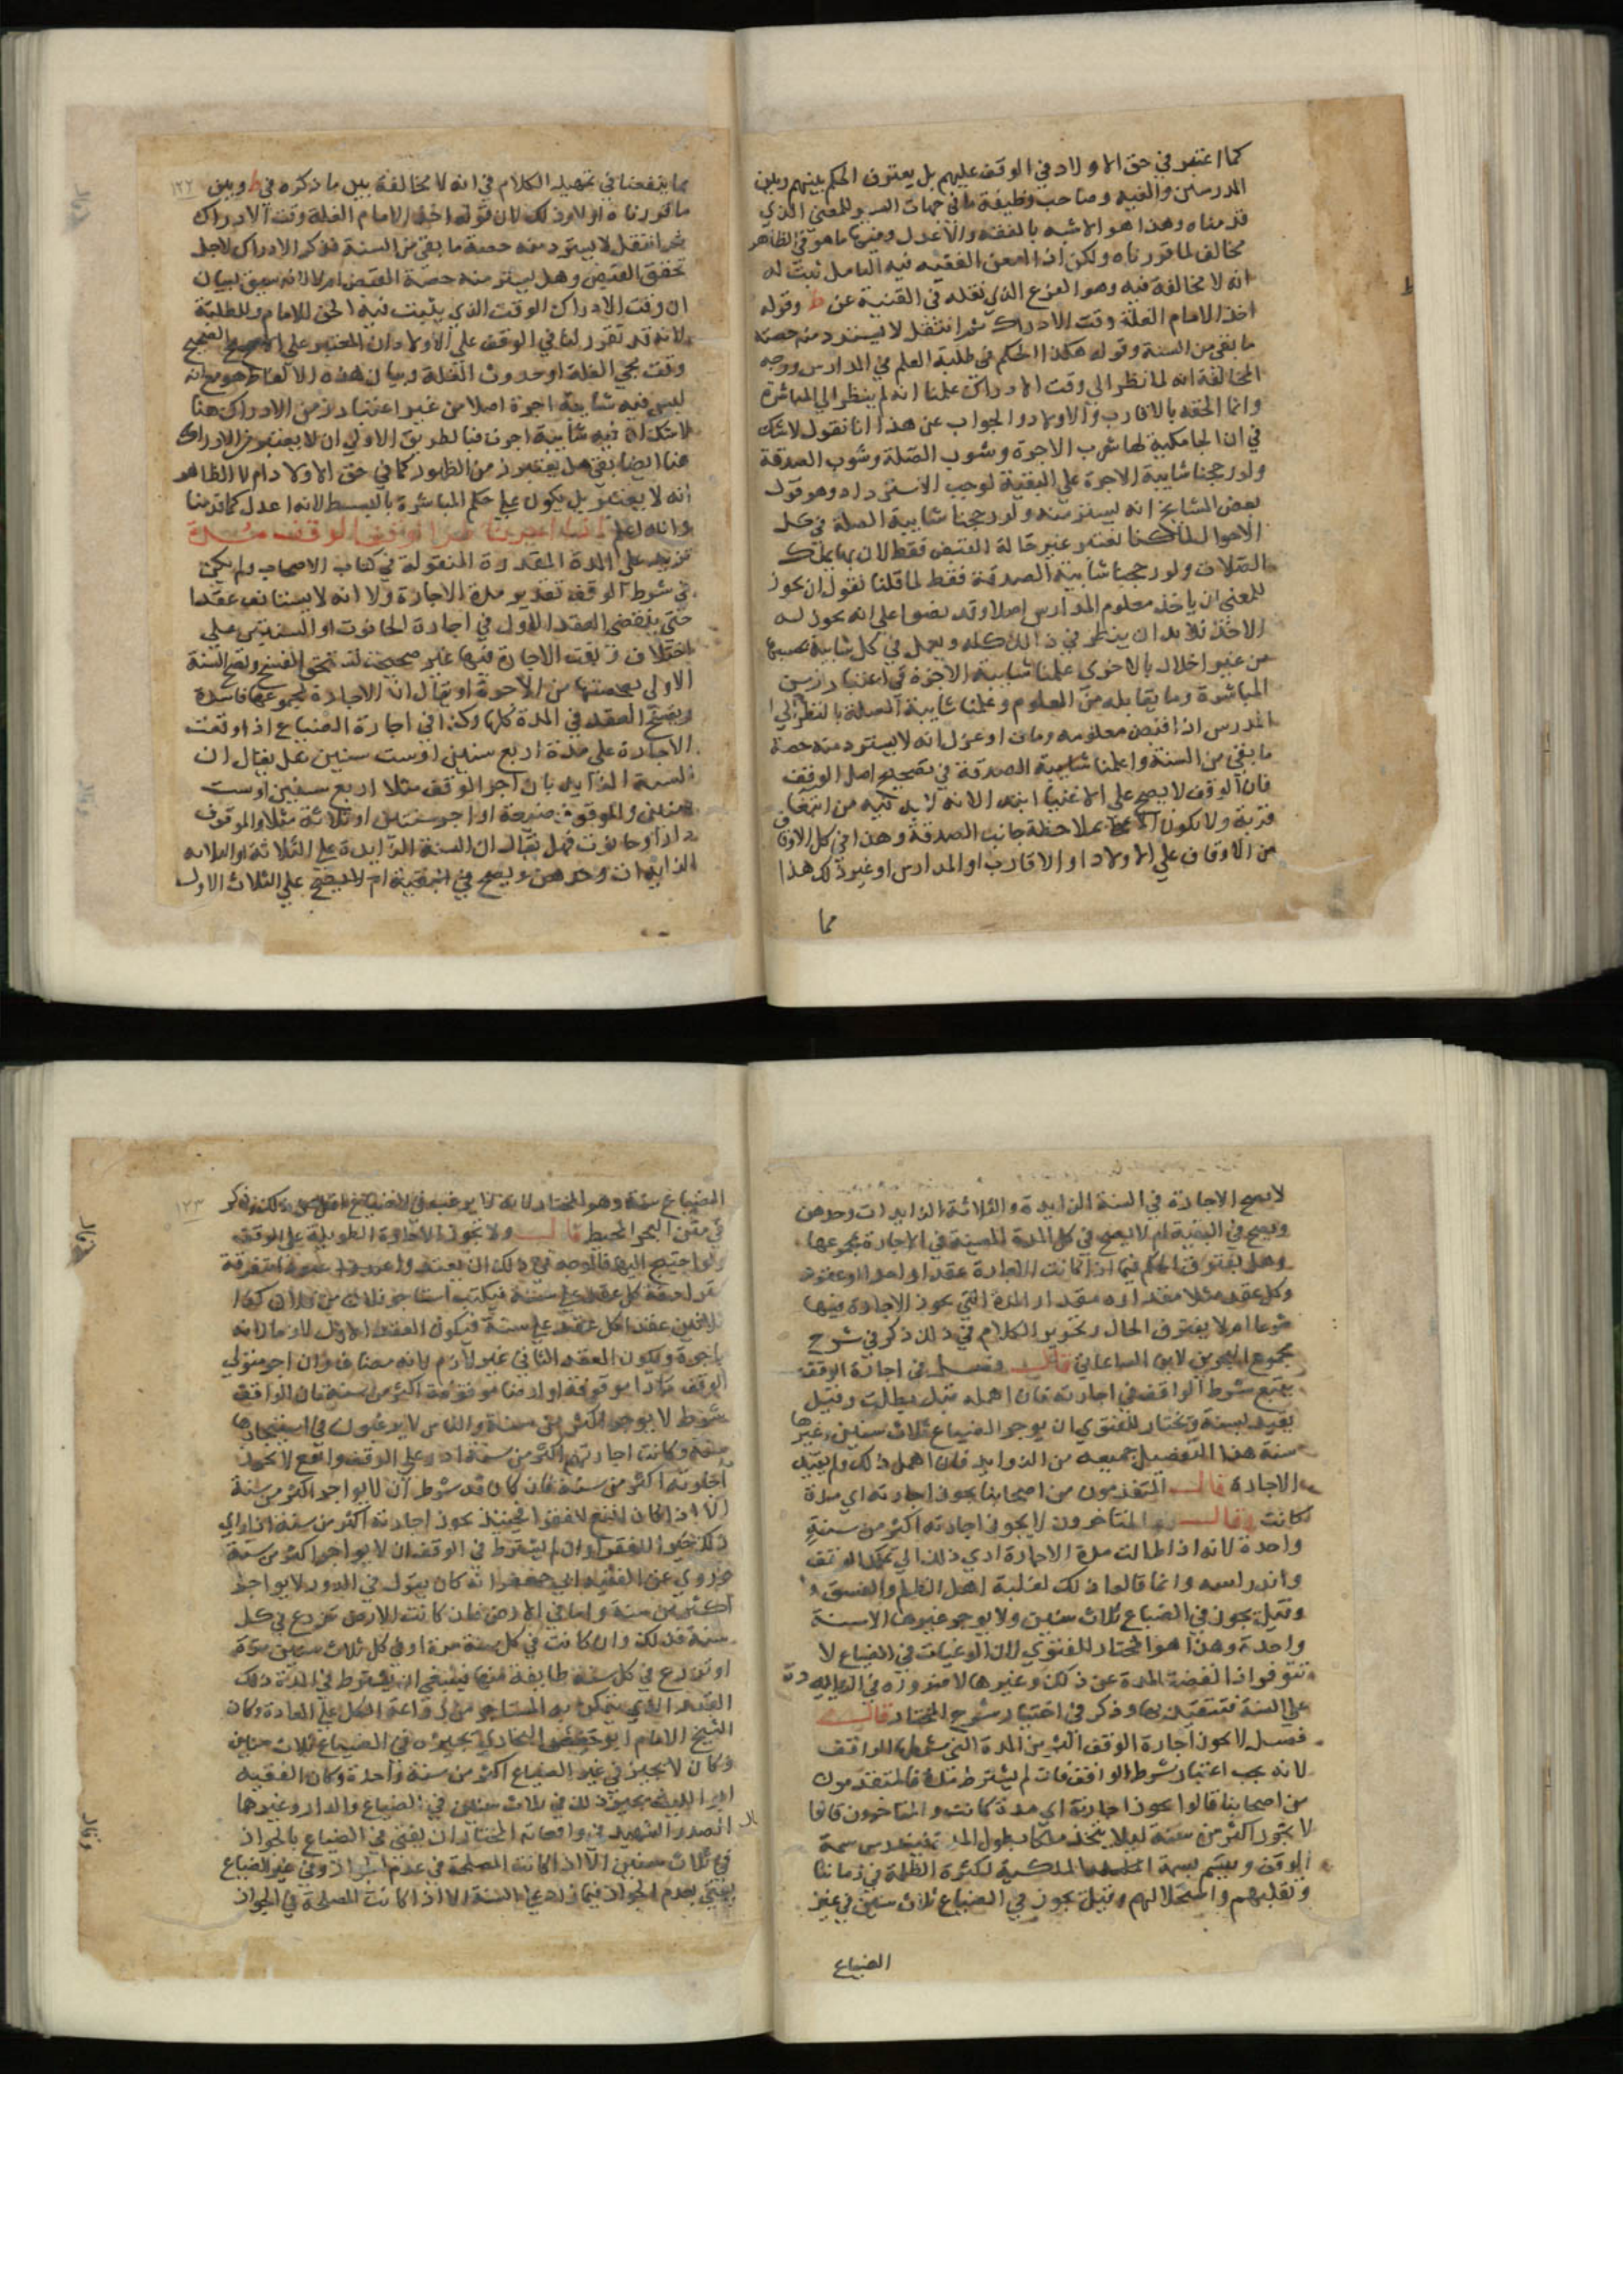 كما اعتبر في حق الاولاد في الوقف عليهم بل يفترق الحكم بينهم وبين
المدرسين والفقيه وصاحب وظيفة ما في جهات البر وللمعنى الذي
قدمناه وهذا هو الاشبه بالفقه والاعدل ومنها ما هو في الظاهر
مخالف لما قررناه ولكن اذا امعن الفقيه فيه التامل ثبت له
انه لا مخالفة فيه وهو الفرع الذي نقله في القنية عن ط وقوله
اخذ الامام الغلة وقت الادراك ثم انتقل لا يسترد منه حصة
ما بقي من السنة وقوله هكذا الحكم في طلبة العلم في المدارس ووجه
المخالفة انه لما نظر الى وقت الادراك علمنا انه لم ينظر الى المباشرة
وانما الحقه بالاقارب والاولاد والجواب عن هذا انا نقول لا شك
في ان الجامكية لها شوب الاجرة وشوب الصلة وشوب الصدقة
ولو رجحنا شايبة الاجرة على البقية لوجب الاسترداد وهو قول
بعض المشايخ انه يسترد منه ولو رجحنا شايبة الصلة في كل
الاحوال لما كنا نعتبر غير حالة القبض فقط لان بها يملك
الصلات ولو رجحنا شايبة الصدقة فقط لما قلنا نقول ان يجوز
للغني ان ياخذ معلوم المدارس اصلا وقد نصوا على انه يجوز له
الاخذ فلا بد ان ينظر في ذلك كله ويعمل في كل شايبة بحسبها
من غير اخلال بالاخرى علمنا شايبة الاجرة في اعتبار زمن
المباشرة وما يقابله من المعلوم وعلمنا شايبة الصلة بالنظر الى
المدرس اذا قبض معلومه ومات او عزل انه لا يسترد منه حصة
ما بقي من السنة واعلمنا شايبة الصدقة في تصحيح اصل الوقف
فان الوقف لا يصح على الاغنيا ابتدا لانه لا بد فيه من ابتغا
قربة ولا تكون الا بملاحظة جانب الصدقة وهذا في كل الاوقاف
من الاوقاف على الاولاد او الاقارب او المدارس او غير ذلك هذا
مما
ط
١٢٢
مما ينفعنا في تمهيد الكلام في انه لا مخالفة بين ما ذكره في ط وبين
ما قررناه اولا وذلك لان قوله اخذ الامام الغلة وقت الادراك
ثم انتقل لا يسترد منه حصة ما بقي من السنة فذكر الادراك لاجل
تحقق القبض وهل يسترد منه حصة القبض ام لا لانه سيق لبيان
ان وقت الادراك الوقت الذي يثبت فيه الحق للامام وللطلبة
لانه قد تقرر لنا في الوقف على الاولاد ان المعتبر على الاصح الصحيح
وقت مجي الغلة او حدوث الغلة وبيان هذه الالفاظ هو مع انه
ليس فيه شايبة اجرة اصلا من غير اعتبار زمن الادراك هنا
لا شك ان فيه شايبة اجرة فبالطريق الاولى ان لا يعتبر زمن الادراك
هنا ايضا بقي هل يعتبر زمن الظهور كما في حق الاولاد ام لا الظاهر
انه لا يعتبر بل يكون على حكم المباشرة بالبسط لانه اعدل كما قدمنا
والله اعلم
تزيد على المدة المقدرة المنقولة في كتاب الاصحاب ولم يكن
في شرط الوقف تقدير مدة الاجارة ولا انه لا يستانف عقدا
حتى ينقضي العقد الاول في اجارة الحانوت او السنتين على
اختلاف وقعت الاجارة فيها غير صحيحة
الاولى بحصتها من الاجرة او نقال ان الاجارة بمجموعها فاسدة
ويفسخ العقد في المدة كلها وكذا في اجارة الضياع اذا وقعت
الاجارة على مدة اربع سنين او ست سنين هل يقال ان
السنة الزايدة بان اجر الوقف مثلا اربع سنين او ست
سنين والموقوف ضيعة او اجر سنتين او ثلاثة مثلا والموقوف
دارا وحانوت فهل يقال ان السنة الزايدة على الثلاثة او الثلاثة
الزايدات وحدهن ويصح في البقية ام لا يصح على الثلاث الاول
لا يصح الاجارة في السنة الزايدة والثلاثة الزايدات وحدهن
ويصح في البقية ام لا يصح في كل المدة المعينة في الاجارة بمجموعها
وهل يفترق الحكم فيما اذا كانت الاجارة عقدا واحدا او عقود
وكل عقد مثلا مقداره مقدار المدة التي يجوز الاجارة فيها
شرعا ام لا يفترق الحال وتحرير الكلام في ذلك ذكر في شرح
مجمع البحرين لابن الساعاتي قال فصل في اجارة الوقف
يتبع شرط الواقف في اجارته فان اهمله قيل يطلق وقيل
يقيد بسنة ويختار للفتوى ان يوجر الضياع ثلاث سنين وغيرها
سنة هذا التفصيل جميعه من الزوايد فان اهمل ذلك ولم يقيد
الاجارة قال المتقدمون من اصحابنا يجوز اجارته اي مدة
كانت وقال المتاخرون لا يجوز اجارته اكثر من سنة
واحدة لانه اذا طالت مدة الاجارة ادى ذلك الى تملك الوقف
واندراسه وانما قالوا ذلك لغلبة اهل الظلم والفسق
وقيل يجوز في الضياع ثلاث سنين ولا يوجر غيرها الا سنة
واحدة وهذا هو المختار للفتوى لان الرغبات في الضياع لا
تتوفر اذا انقضت المدة عن ذلك وغيرها لا ضرورة في الزيادة
على السنة فتتقيد بها وذكر في اختيار شرح المختار قال
فصل لا يجوز اجارة الوقف اكثر من المدة التي شرطها الواقف
لانه يجب اعتبار شرط الواقف فان لم يشترط مدة فالمتقدمون
من اصحابنا قالوا يجوز اجارته اي مدة كانت والمتاخرون قالوا
لا يجوز اكثر من سنة ليلا يتخذ ملكا بطول المدة فتندرس سمة
الوقف ويتسم بسمة الملكية لكثرة الظلمة في زماننا
وتغلبهم واستحلالهم وقيل يجوز في الضياع ثلاث سنين في غير
الضياع
١٢٣
الضياع سنة وهو المختار لانه لا يرغب في الضياع اقل من ذلك وذكر
في متن البحر المحيط قال ولا يجوز الاجارة الطويلة على الوقف
ولو احتيج اليها فالوجه في ذلك ان يعقد عقود متفرقة
كل عقد على سنة فيكتب استاجر فلان من فلان كذا
ثلاثين عقدا كل عقد على سنة فيكون العقد الاول لازما لانه
ناجزة ويكون العقد الثاني غير لازم لانه مضاف وان اجر متولي
الوقف دارا موقوفة او ارضا موقوفة اكثر من سنة فان الواقف
شرط لا يوجر اكثر من سنة والناس لا يرغبون في استيجارها
سنة وكانت اجارتها اكثر من سنة ادر على الوقف وانفع لا يجوز
اجارته اكثر من سنة فان كان قد شرط ان لا يواجر اكثر من سنة
الا اذا كان انفع للفقراء فحينئذ يجوز اجارته اكثر من سنة اذا راى
ذلك خيرا للفقرا وان لم يشترط في الوقف ان لا يواجر اكثر من سنة
فروي عن الفقيه ابي جعفر انه كان يقول في الدور لا يواجر
اكثر من سنة واما في الارض فان كانت الارض تزرع في كل
سنة فكذلك وان كانت في كل سنة مرة او في كل ثلاث سنين مرة
او تزرع في كل سنة طايفة منها فينبغي ان يشترط في المدة ذلك
القدر الذي يتمكن به المستاجر من زراعة الكل على العادة وكان
الشيخ الامام ابو حفص البخاري يجيزه في الضياع ثلاث سنين
وكان لا يجيز في غير الضياع اكثر من سنة واحدة وكان الفقيه
ابو الليث يجيز ذلك في ثلاث سنين في الضياع والدار وغيرهما
الصدر الشهيد في واقعاته المختار ان يفتى في الضياع بالجواز
في ثلاث سنين الا اذا كانت المصلحة في عدم الجواز وفي غير الضياع
يفتى بعدم الجواز فيما زاد على السنة الا اذا كانت المصلحة في الجواز